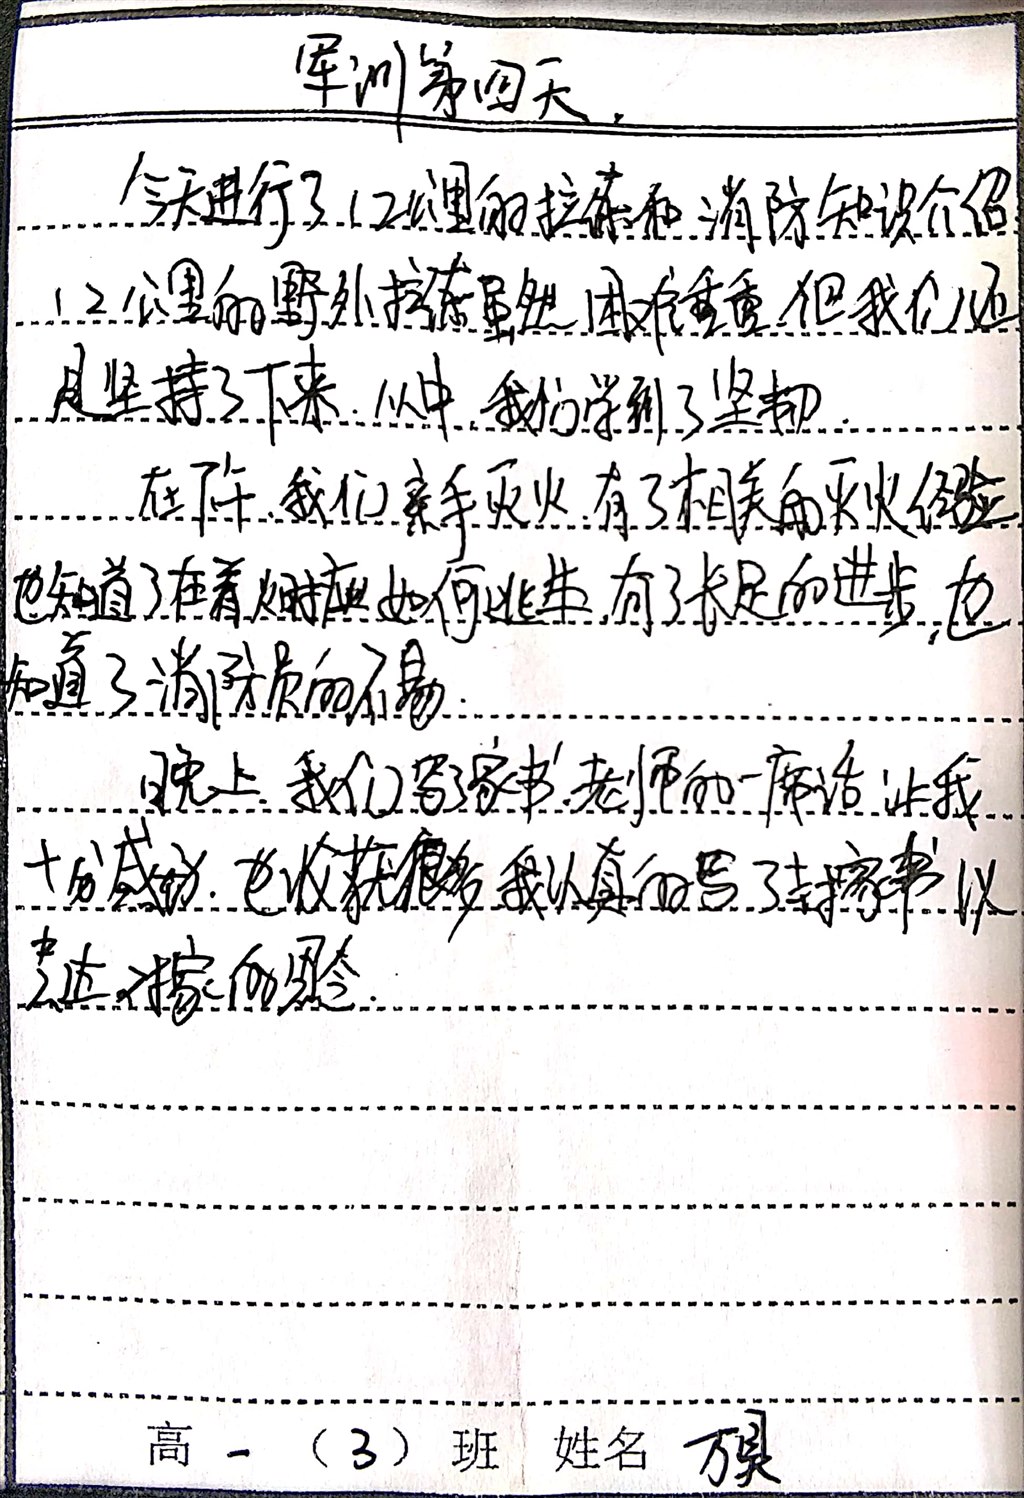 军训第四天.
今天进行了12公里的拉练和消防知识介绍
12公里的野外拉练虽然困难重重.但我们还
是坚持了下来.从中,我们学到了坚韧.
在下午.我们亲手灭火.有了相关的灭火经验
也知道了在着火时应如何逃生.有了长足的进步,也
知道了消防员的不易.
晚上.我们写了家书.老师的一席话让我
十分感动.也收获很多我认真的写了封家书以
表达对家的思念.
高一(3)班 姓名